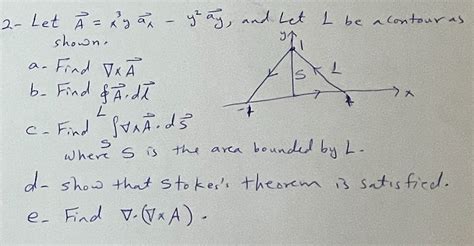 2- Let A⃗ = x³y a⃗x - y² a⃗y, and Let L be a contour as
shown.
a- Find ∇×A⃗
b- Find ∮A⃗.dl⃗
L
c- Find ∫∇×A⃗.ds⃗
S
where S is the area bounded by L.
d- show that Stokes's theorem is satisfied.
e- Find ∇.(∇×A).
y
1
L
S
x
-1
1